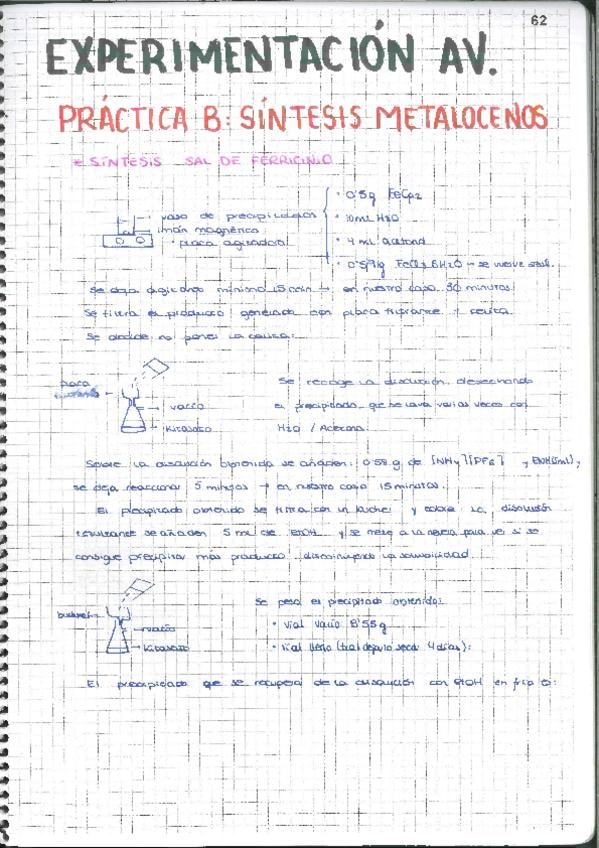 62
EXPERIMENTACIÓN AV.
PRÁCTICA B: SÍNTESIS METALOCENOS
* SÍNTESIS SAL DE FERRICINIO
vaso de precipitados
imán magnético
placa agitadora
• 0'5g FeCp2
• 10mL H2O
• 4 mL acetona
FeCl3 6H2O → se vuelve azul.
Se deja agitando mínimo 15 min → en nuestro caso 30 minutos.
Se filtra el producto generado con placa filtrante y celita.
Se decide no poner la celita.
placa
filtrante
vacío
Kitasato
Se recoge la disolución, desechando
el precipitado, que se lava varias veces con
H2O / Acetona.
Sobre la disolución obtenida se añaden: 0'58 g de [NH4][PF6] y EtOH (5ml),
se deja reaccionar 5 minutos → en nuestro caso 15 minutos.
El precipitado obtenido se filtra con un büchner y sobre la disolución
resultante se añaden 5 mL de EtOH y se mete a la nevera para ver si se
consigue precipitar más producto, disminuyendo la solubilidad.
vacío
Kitasato
Se pesa el precipitado obtenido:
• vial vacío 8'55g
• vial lleno (tras dejarlo secar 4 días):
El precipitado que se recupera de la disolución con EtOH en frío